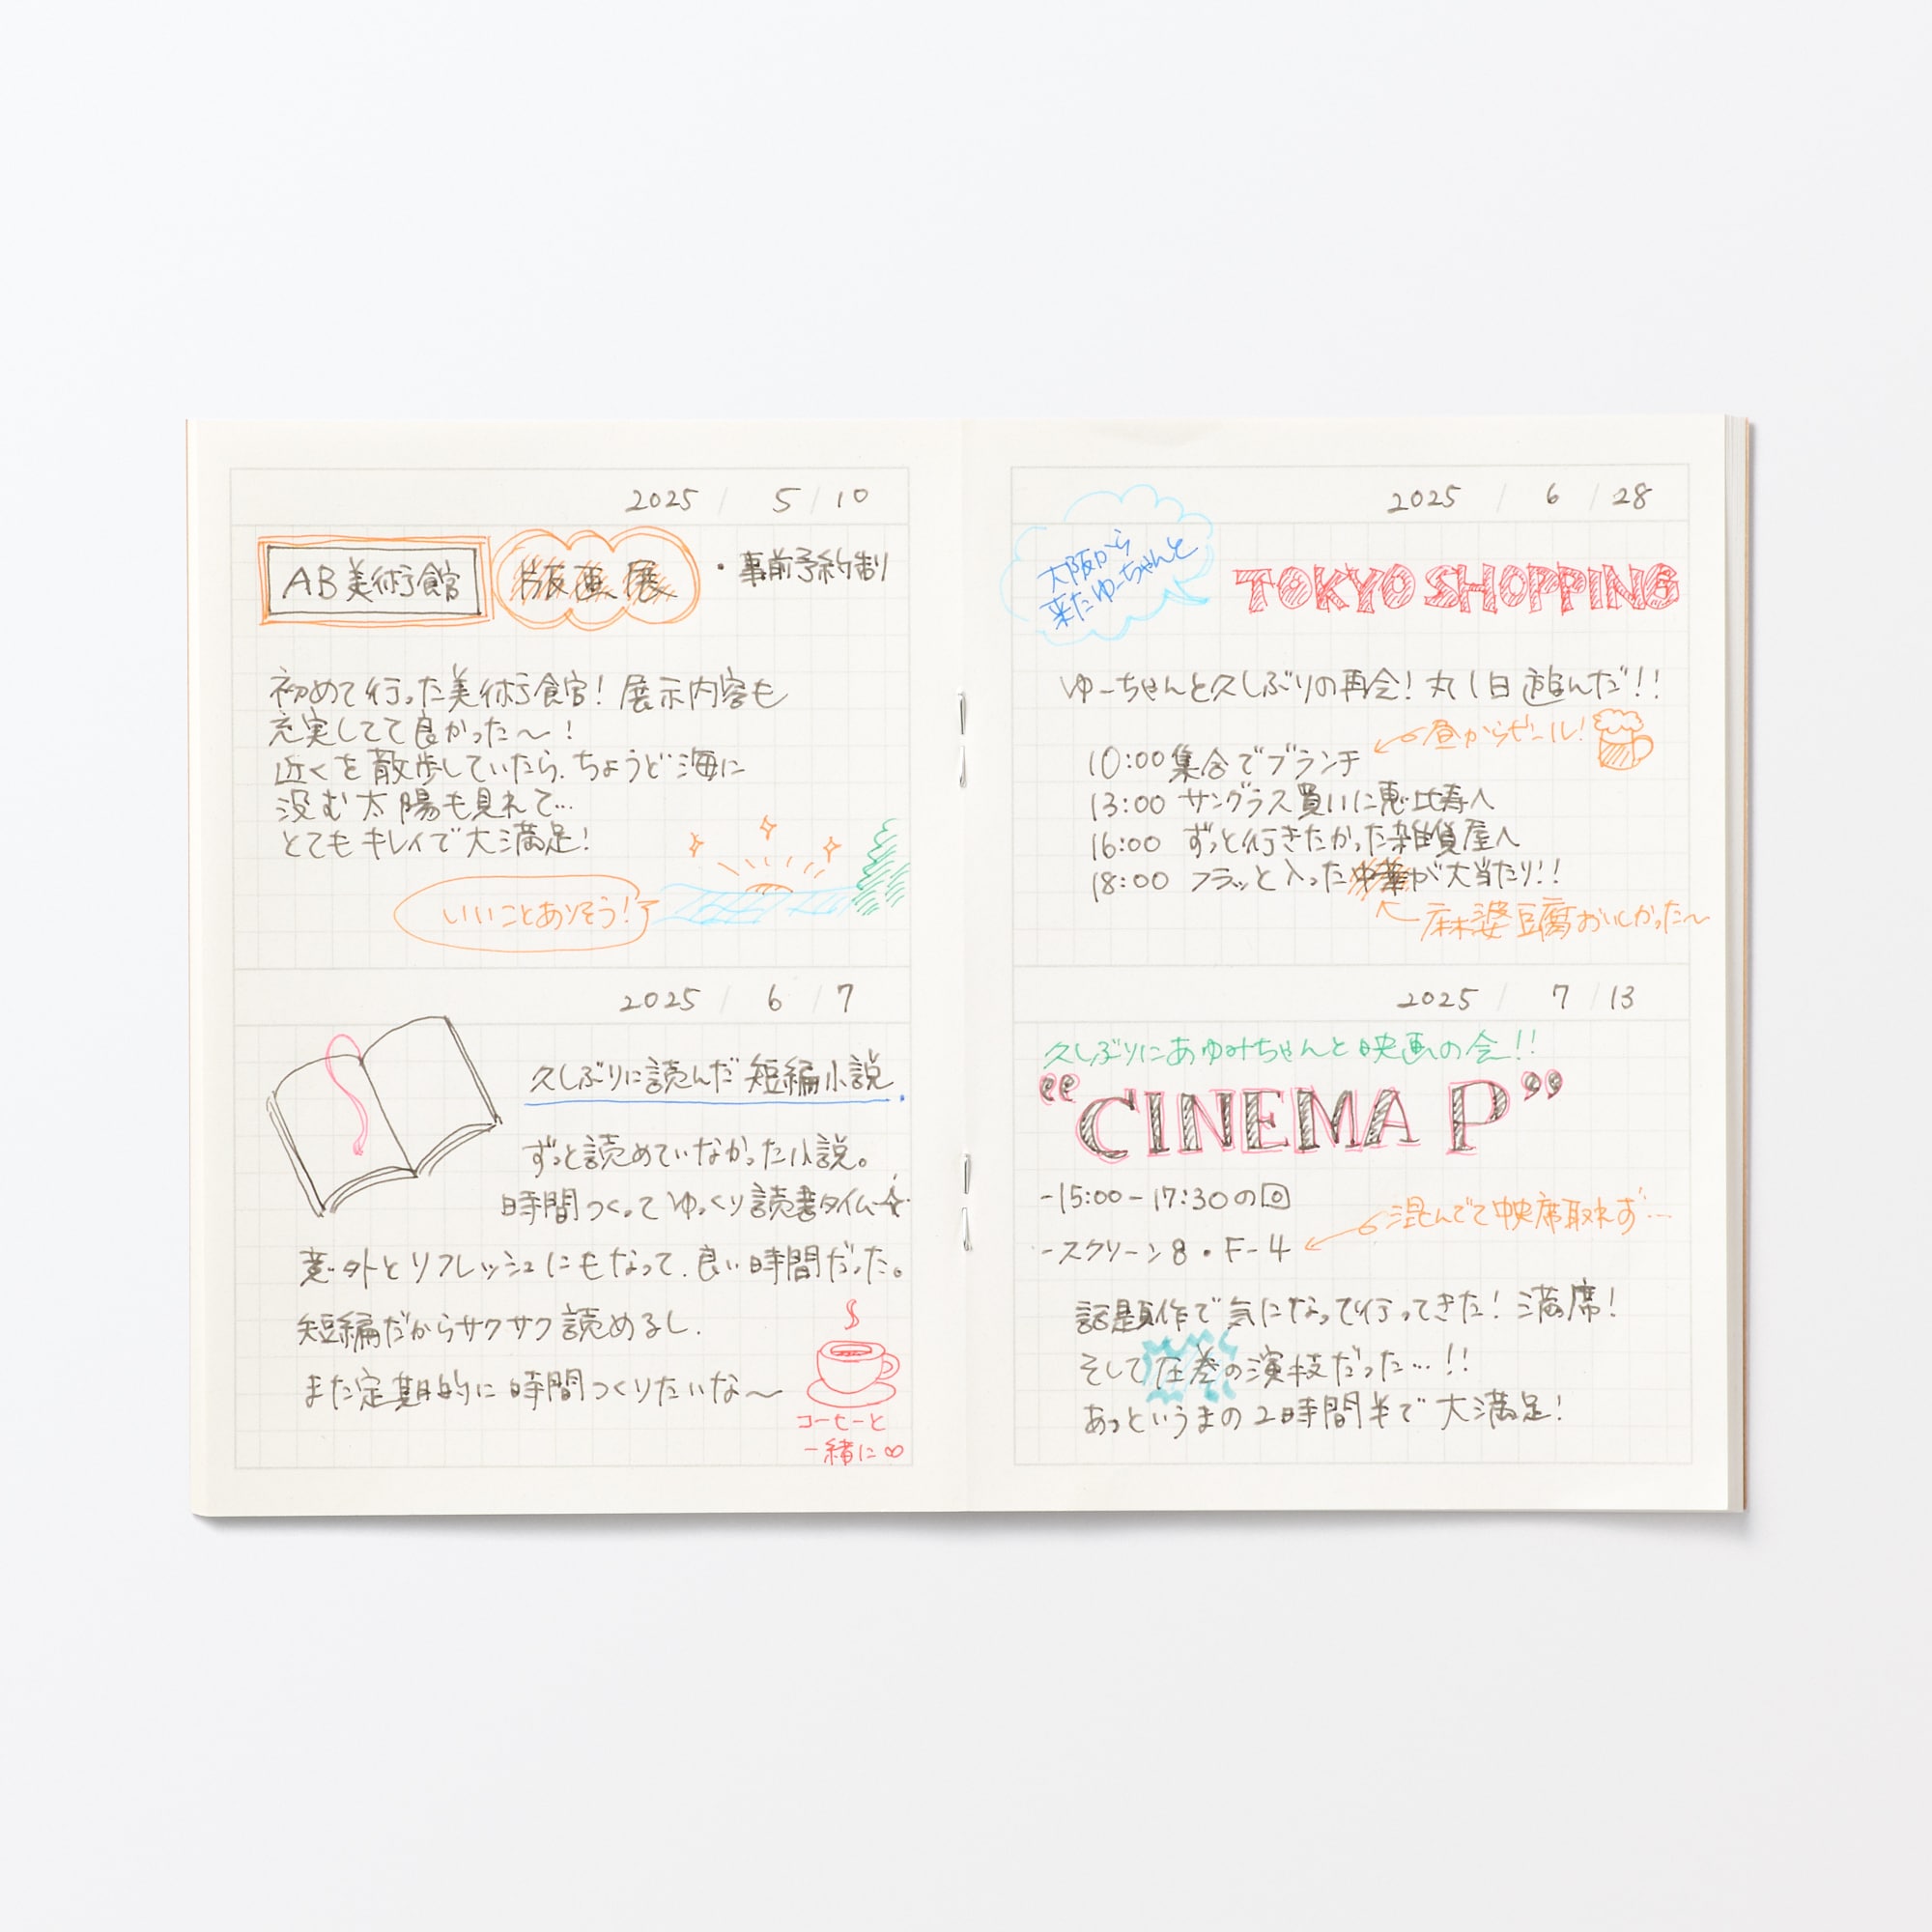 2025 / 5 / 10
AB美術館 版画展 ・事前予約制
初めて行った美術館！展示内容も
充実してて良かった〜！
近くを散歩していたら、ちょうど海に
没む太陽も見れて…
とてもキレイで大満足！
いいことありそう！
2025 / 6 / 7
久しぶりに読んだ短編小説.
ずっと読めていなかった小説。
時間つくってゆっくり読書タイム☆
意外とリフレッシュにもなって、良い時間だった。
短編だからサクサク読めるし、
また定期的に時間つくりたいな〜
コーヒーと
一緒に∞
2025 / 6 / 28
大阪から
来たゆーちゃんと
TOKYO SHOPPING
ゆーちゃんと久しぶりの再会！丸1日遊んだ!!
昼からビール！
10:00 集合でブランチ
13:00 サングラス買いに恵比寿へ
16:00 ずっと行きたかった雑貨屋へ
18:00 フラッと入った中華が大当たり!!
麻婆豆腐おいしかった〜
2025 / 7 / 13
久しぶりにあゆみちゃんと映画の会!!
“CINEMA P”
-15:00-17:30の回
混んでて中央席取れず…
-スクリーン8・F-4
話題作で気になって行ってきた！満席！
そして圧巻の演技だった…!!
あっというまの2時間半で大満足！